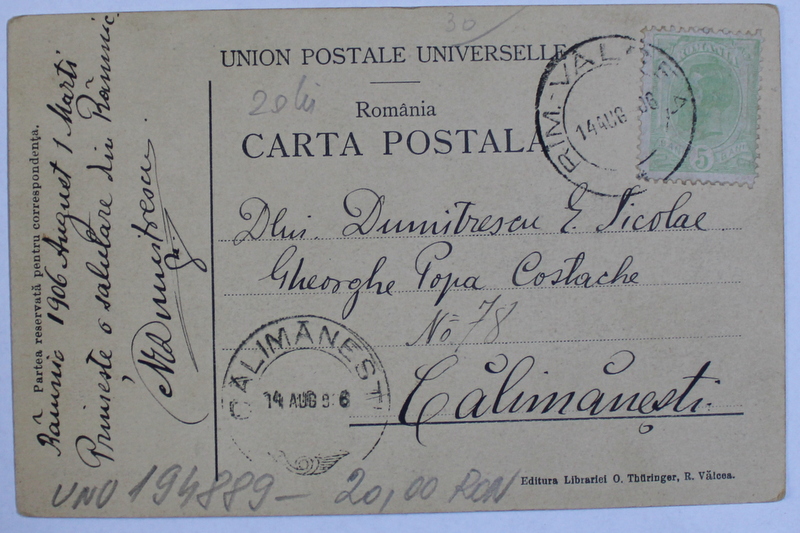 30
UNION POSTALE UNIVERSELLE
20 lei
România
CARTA POSTALA
RIM-VALCEA
14 AUG 06
ROMANIA
5
Dlui. Dumitrescu E. Nicolae
Gheorghe Popa Costache
No 78
Călimănești.
CĂLIMĂNEȘTI
14 AUG 906
Partea reservată pentru corespondența.
Râmnic 1906 August 1 Marti
Primeste o salutare din Râmnic
Editura Librariei O. Thüringer, R. Vâlcea.
UNO 194889 - 20,00 RON